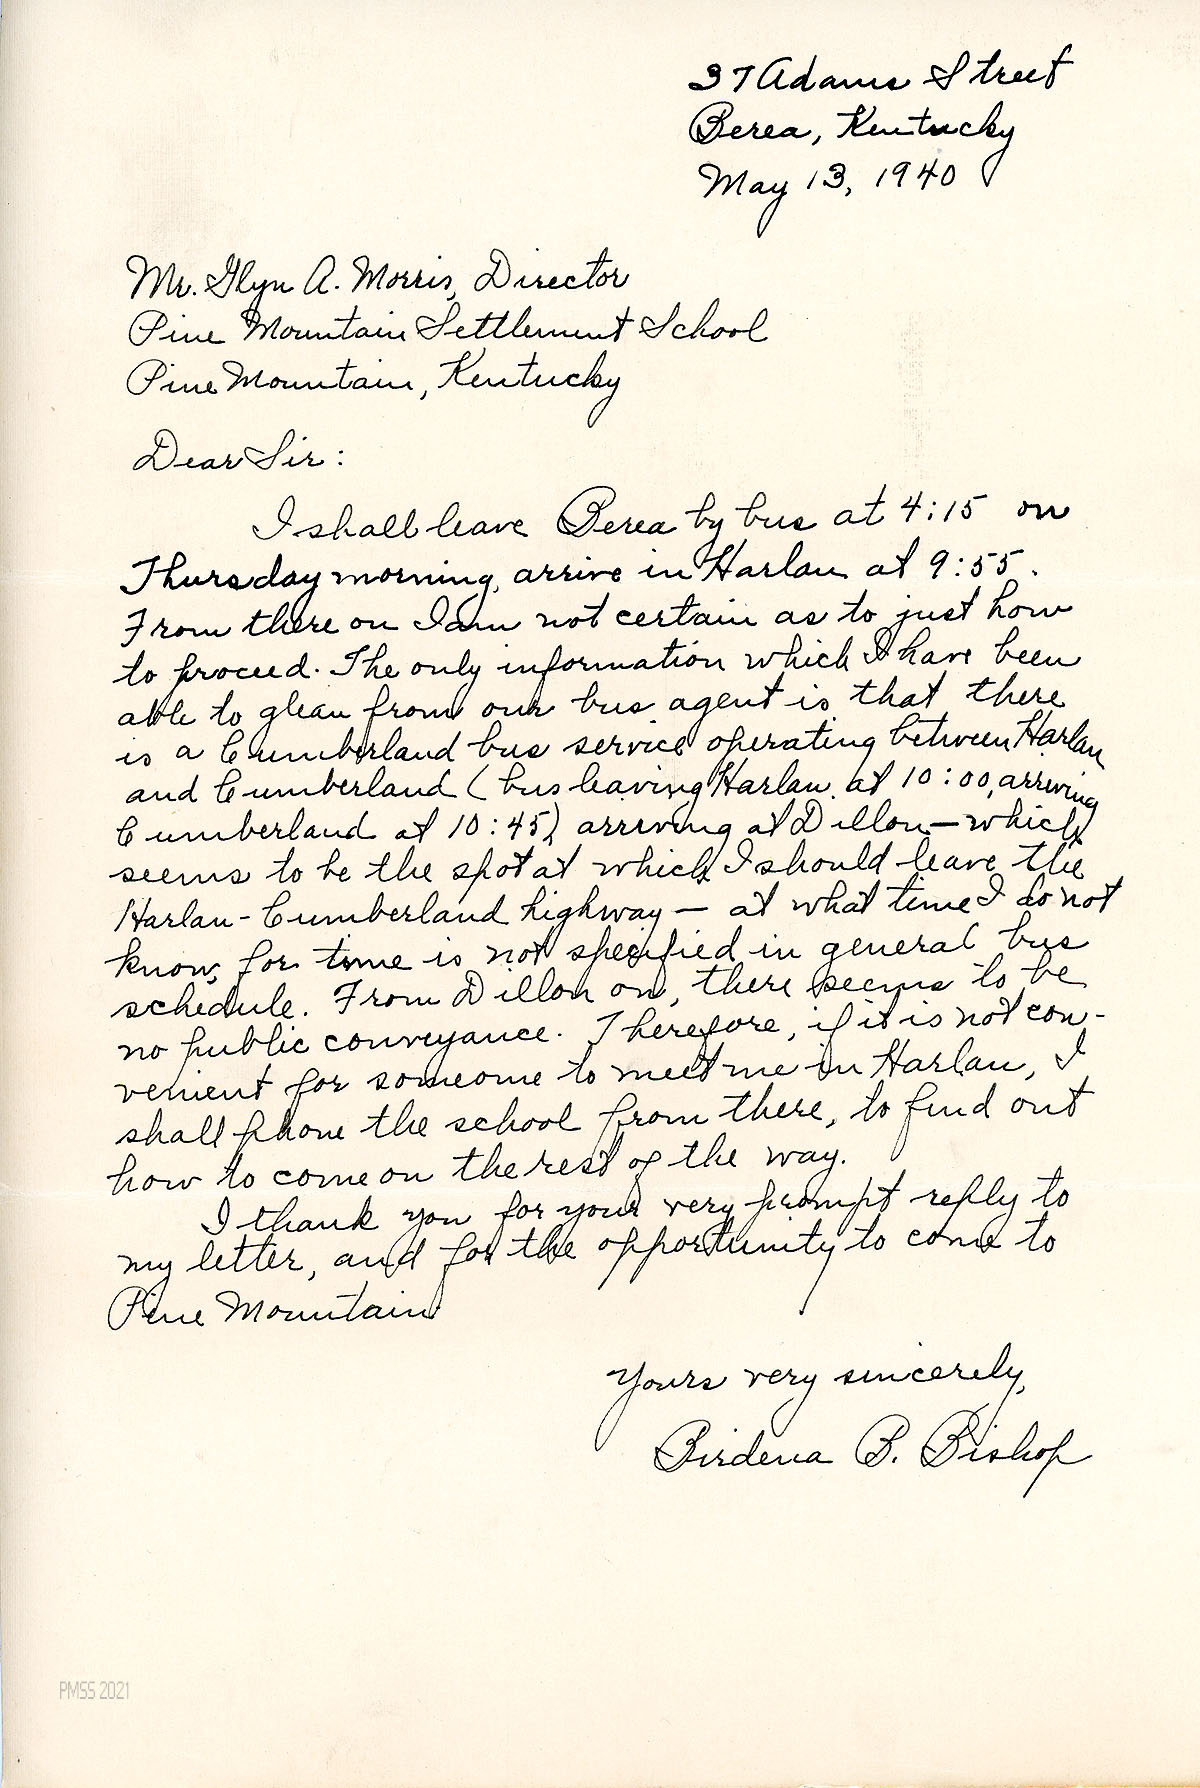 37 Adams Street
Berea, Kentucky
May 13, 1940
Mr. Glyn A. Morris, Director
Pine Mountain Settlement School
Pine Mountain, Kentucky
Dear Sir:
I shall leave Berea by bus at 4:15 on
Thursday morning, arrive in Harlan at 9:55.
From there on I am not certain as to just how
to proceed. The only information which I have been
able to glean from our bus agent is that there
is a Cumberland bus service operating between Harlan
and Cumberland (bus leaving Harlan at 10:00, arriving
Cumberland at 10:45) arriving at Dillon — which
seems to be the spot at which I should leave the
Harlan-Cumberland highway — at what time I do not
know, for time is not specified in general bus
schedule. From Dillon on, there seems to be
no public conveyance. Therefore, if it is not con-
venient for someone to meet me in Harlan, I
shall phone the school from there, to find out
how to come on the rest of the way.
I thank you for your very prompt reply to
my letter, and for the opportunity to come to
Pine Mountain
Yours very sincerely,
Birdena B. Bishop
PMSS 2021